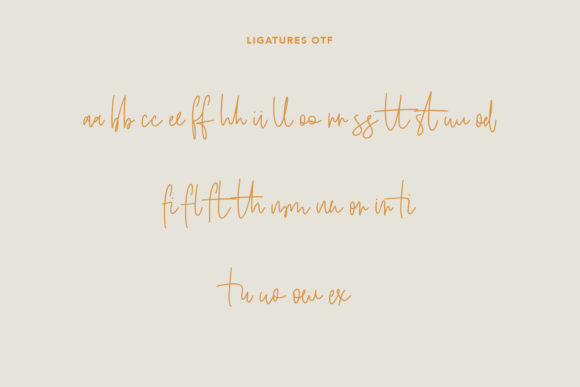 LIGATURES OTF
aa bb cc ee ff hh ii ll oo rr ss tt st uu od
fi fl ft th mm nn on in ti
tu uo ow ex